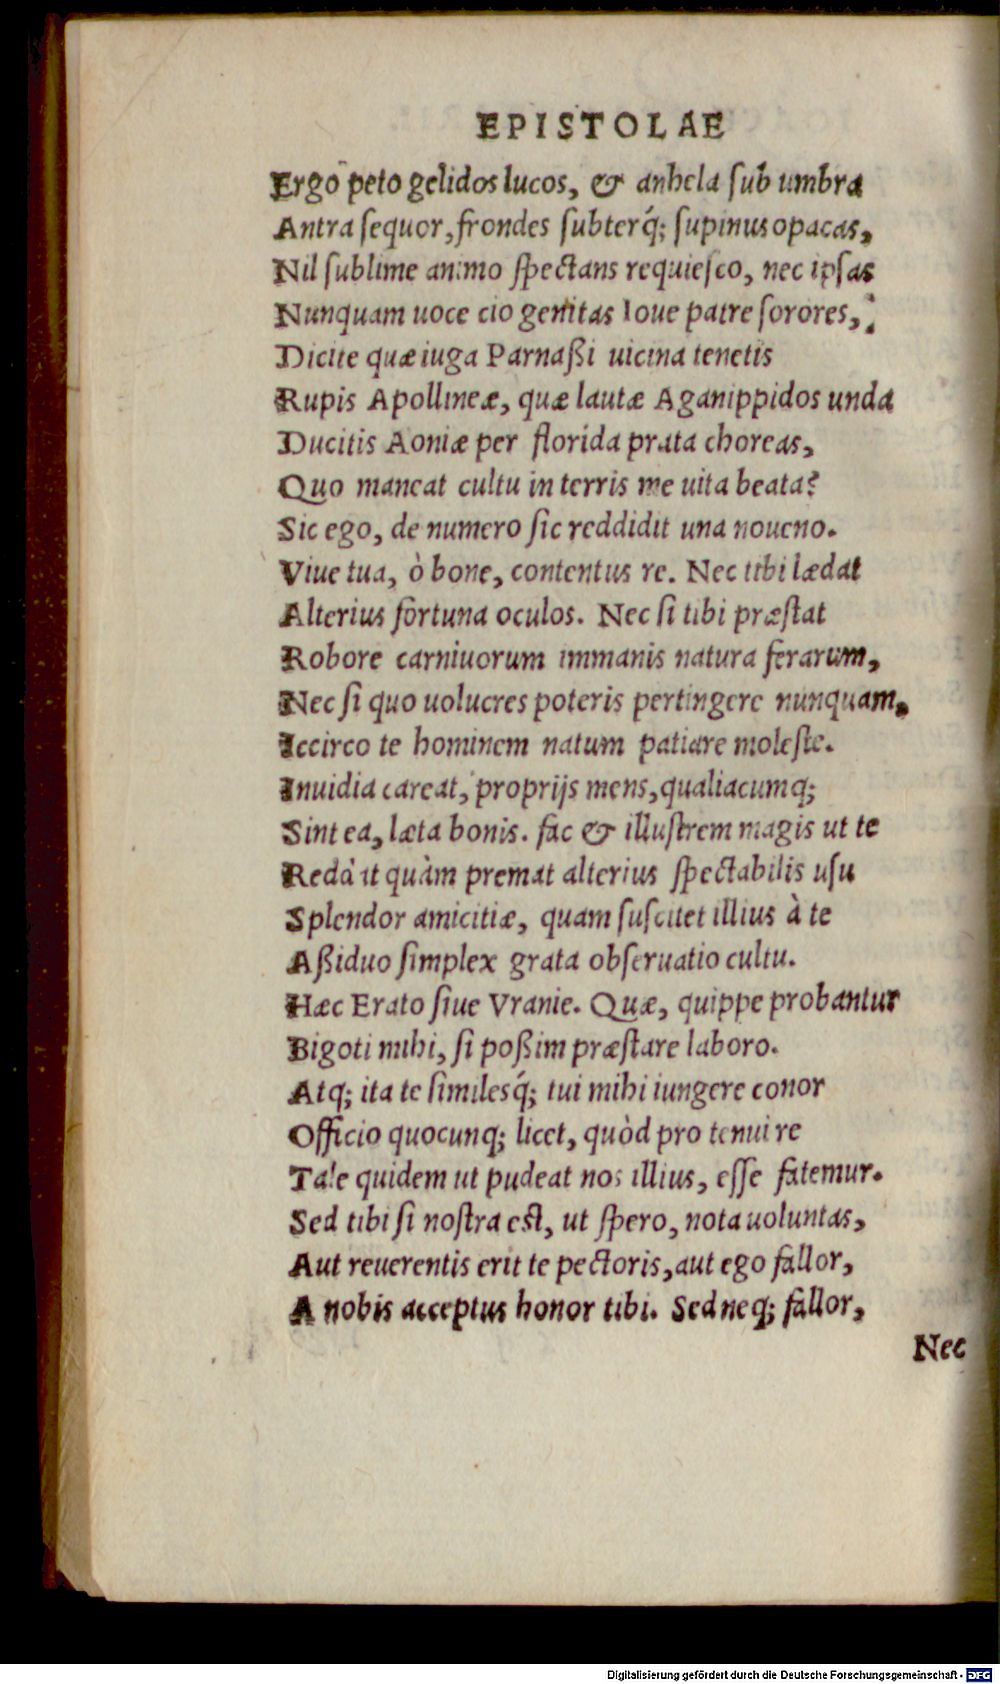 EPISTOLAE
Ergo peto gelidos lucos, & anhela sub umbra
Antra sequor, frondes subterq́; supinus opacas,
Nil sublime animo spectans requiesco, nec ipsas
Nunquam uoce cio genitas Ioue patre sorores,
Dicite quæ iuga Parnaßi uicina tenetis
Rupis Apollineæ, quæ lautæ Aganippidos unda
Ducitis Aoniæ per florida prata choreas,
Quo maneat cultu in terris me uita beata?
Sic ego, de numero sic reddidit una noueno.
Viue tua, ò bone, contentus re. Nec tibi lædat
Alterius fortuna oculos. Nec si tibi præstat
Robore carniuorum immanis natura ferarum,
Nec si quo uolucres poteris pertingere nunquam,
Iccirco te hominem natum patiare moleste.
Inuidia careat, proprijs mens, qualiacumq;
Sint ea, læta bonis. fac & illustrem magis ut te
Reddat quàm premat alterius spectabilis usu
Splendor amicitiæ, quam suscitet illius à te
Aßiduo simplex grata obseruatio cultu.
Hæc Erato siue Vranie. Quæ, quippe probantur
Bigoti mihi, si poßim præstare laboro.
Atq; ita te similesq́; tui mihi iungere conor
Officio quocunq; licet, quòd pro tenui re
Tale quidem ut pudeat nos illius, esse fatemur.
Sed tibi si nostra est, ut spero, nota uoluntas,
Aut reuerentis erit te pectoris, aut ego fallor,
A nobis acceptus honor tibi. Sed neq; fallor,
Nec
Digitalisierung gefördert durch die Deutsche Forschungsgemeinschaft - DFG